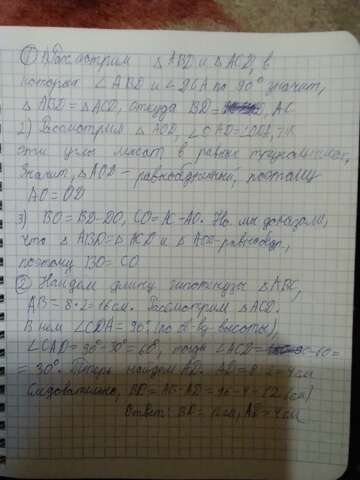 ① 1) Рассмотрим △ABD и △ACD, в
которых ∠ABD и ∠DCA по 90° значит,
△ABD = △ACD. Откуда BD = AC
2) Рассмотрим △AOD, ∠CAD=
эти углы лежат в равных треугольниках,
Значит, △AOD - равнобедренный, поэтому
AO = OD
3) BO = BD-DO, CO = AC-AO. Но мы доказали,
что △ABD = △ACD и △AOD-равнобедр,
поэтому BO = CO
② Найдем длину гипотенузы △ABC,
AB = 8·2 = 16 см. Рассмотрим △ACD.
В нем ∠CDA = 90° (по св-ву высоты),
∠CAD = 90°-30° = 60°, тогда ∠ACD = 90-60=
= 30°. Теперь найдем AD. AD = 8:2 = 4 см
Следовательно, BD = AB-AD = 16-4 = 12 (см)
Ответ: BD = 12 см, 4 см